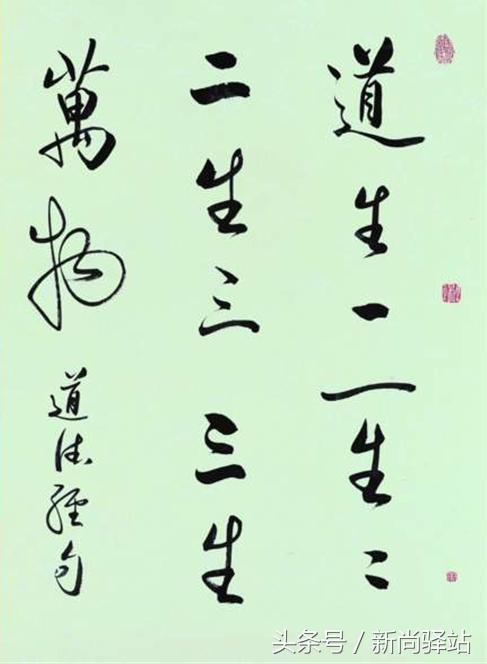 道生一一生二
二生三三生
萬物
道德經句
头条号／新尚驿站